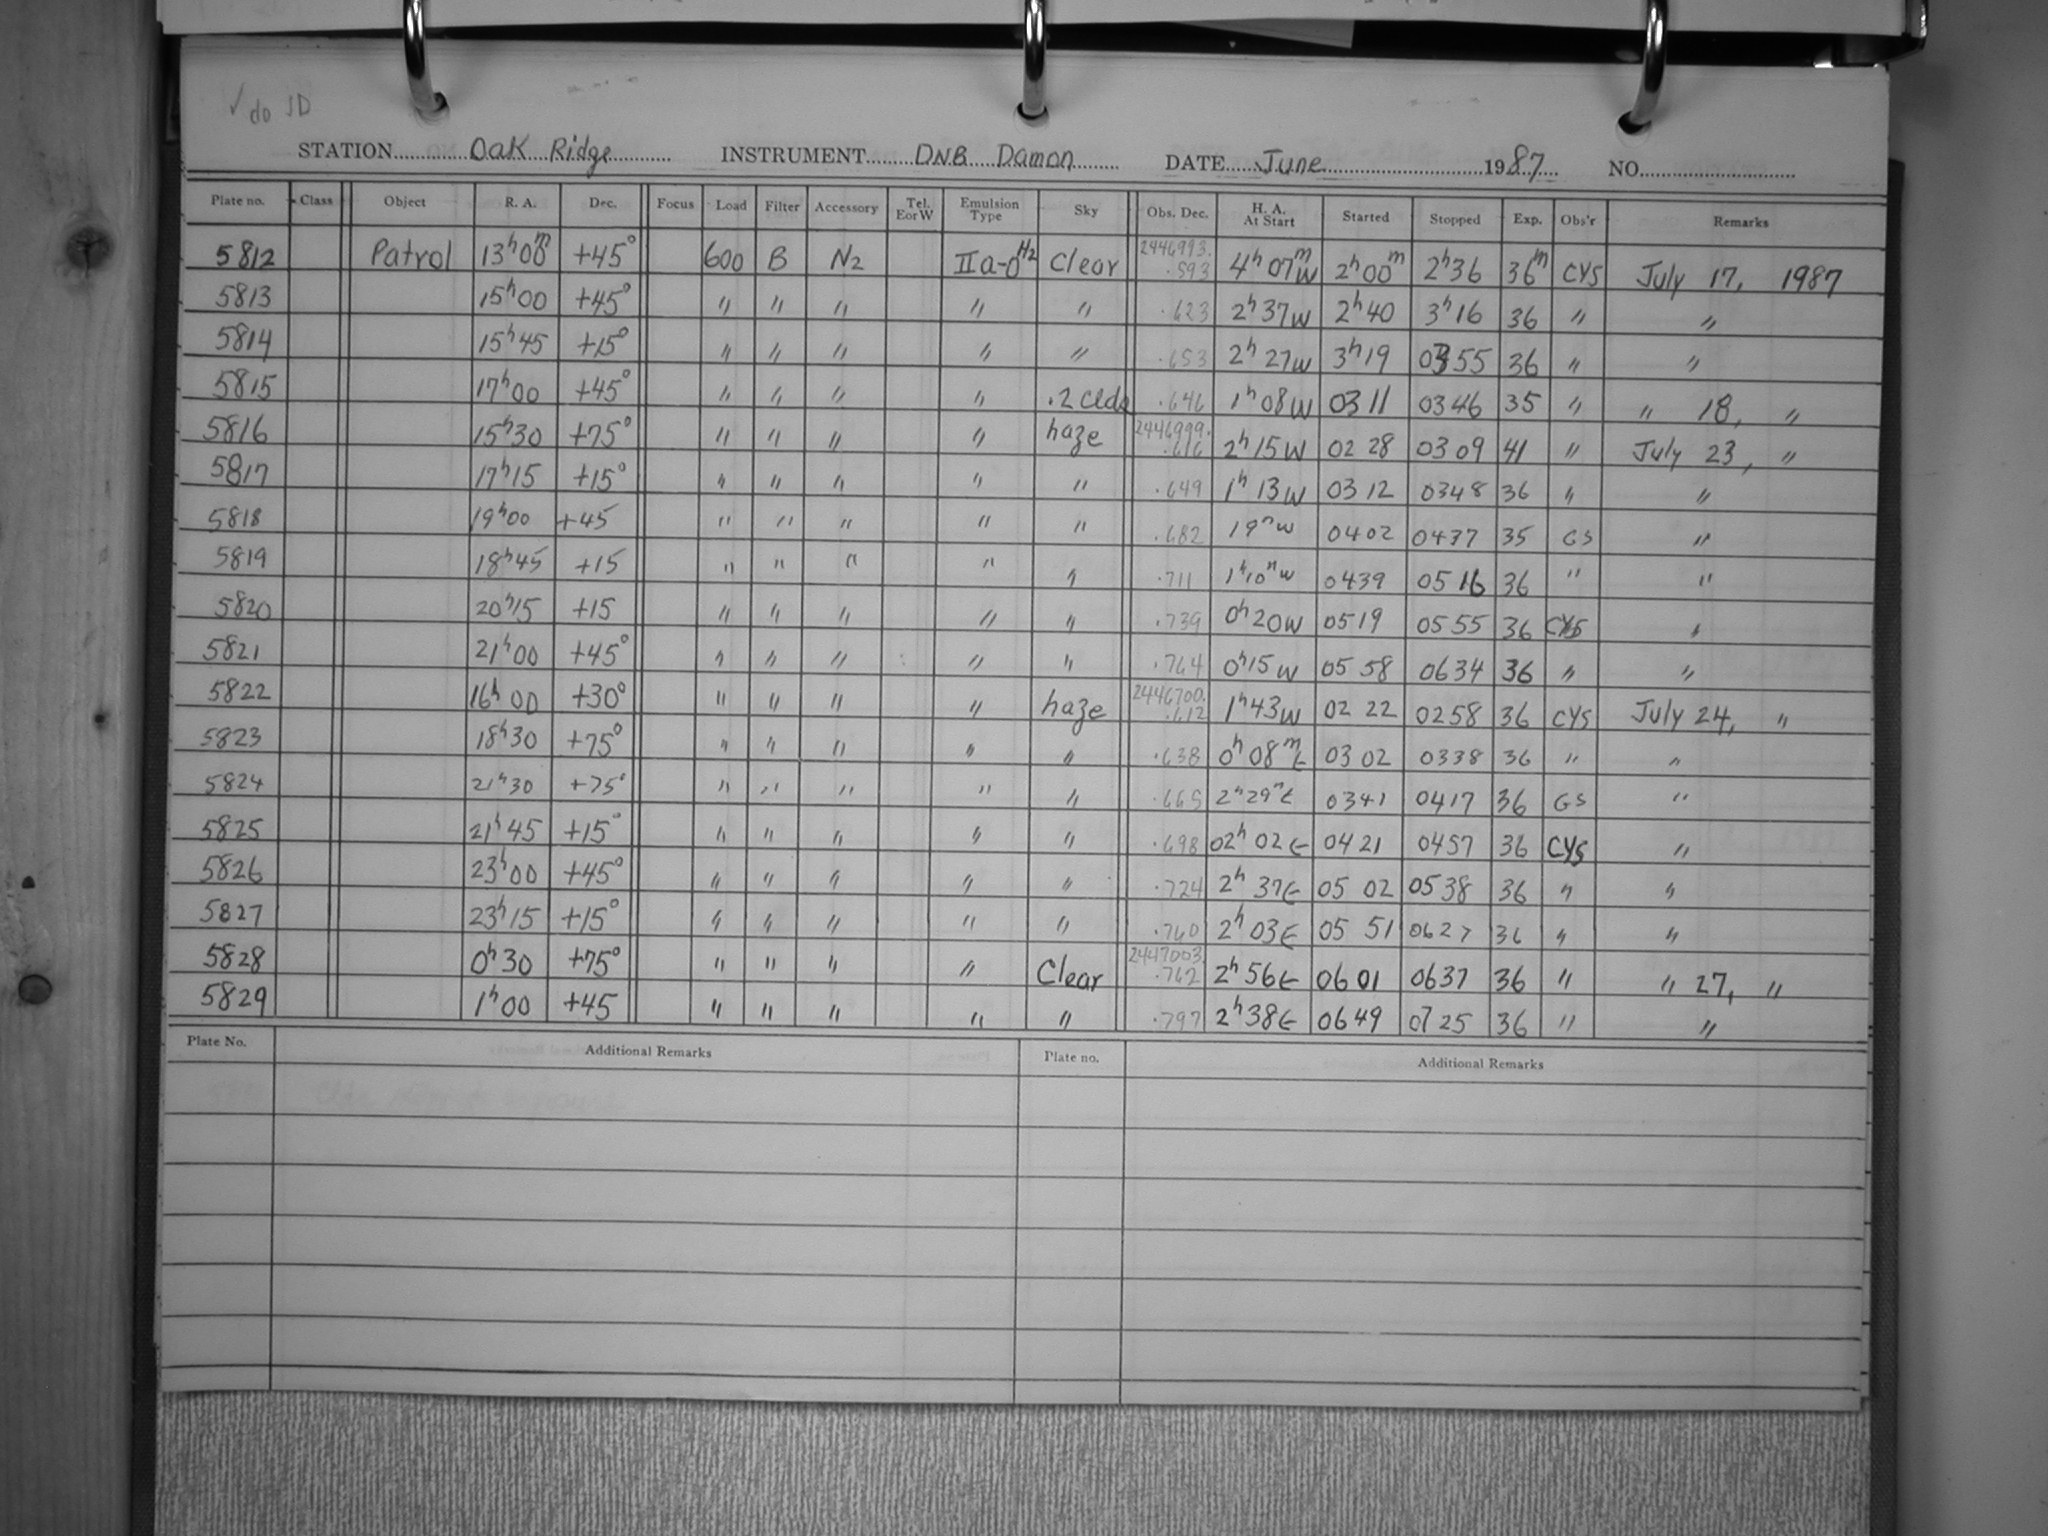 √ do JD
STATION Oak Ridge INSTRUMENT DNB Damon DATE June 1987 NO.
Plate no. Class Object R. A. Dec. Focus Load Filter Accessory Tel. E or W Emulsion Type Sky Obs. Dec. H. A. At Start Started Stopped Exp. Obs'r Remarks
5812 Patrol 13h00m +45° 600 B N2 IIa-O H2 Clear 2446993. .593 4h07mW 2h00m 2h36 36m CYS July 17, 1987
5813 15h00 +45° " " " " " .623 2h37W 2h40 3h16 36 " "
5814 15h45 +15° " " " " " .653 2h27W 3h19 0355 36 " "
5815 17h00 +45° " " " " .2 clds .646 1h08W 0311 0346 35 " " 18, "
5816 15h30 +75° " " " " haze 2446999. .616 2h15W 02 28 0309 41 " July 23, "
5817 17h15 +15° " " " " " .649 1h13W 03 12 0348 36 " "
5818 19h00 +45 " " " " " .682 19mW 0402 0437 35 GS "
5819 18h45 +15 " " " " " .711 1h10mW 0439 0516 36 " "
5820 20h15 +15 " " " " " .739 0h20W 0519 0555 36 CYS "
5821 21h00 +45° " " " " " .764 0h15W 05 58 0634 36 " "
5822 16h00 +30° " " " " haze 2446700. .612 1h43W 02 22 0258 36 CYS July 24, "
5823 18h30 +75° " " " " " .638 0h08mE 03 02 0338 36 " "
5824 21h30 +75° " " " " " .665 2h29mE 0341 0417 36 GS "
5825 21h45 +15° " " " " " .698 02h02E 0421 0457 36 CYS "
5826 23h00 +45° " " " " " .724 2h37E 05 02 0538 36 " "
5827 23h15 +15° " " " " " .760 2h03E 05 51 0627 36 " "
5828 0h30 +75° " " " " Clear 2447003. .762 2h56E 0601 0637 36 " " 27, "
5829 1h00 +45 " " " " " .797 2h38E 0649 0725 36 " "
Plate No. Additional Remarks Plate no. Additional Remarks